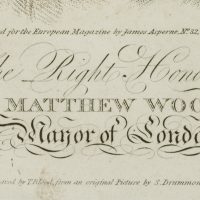 d for the European Magazine by James Asperne, No. 32,
he Right Hono
MATTHEW WOO
Mayor of Londo
from an original Picture by S. Drummon